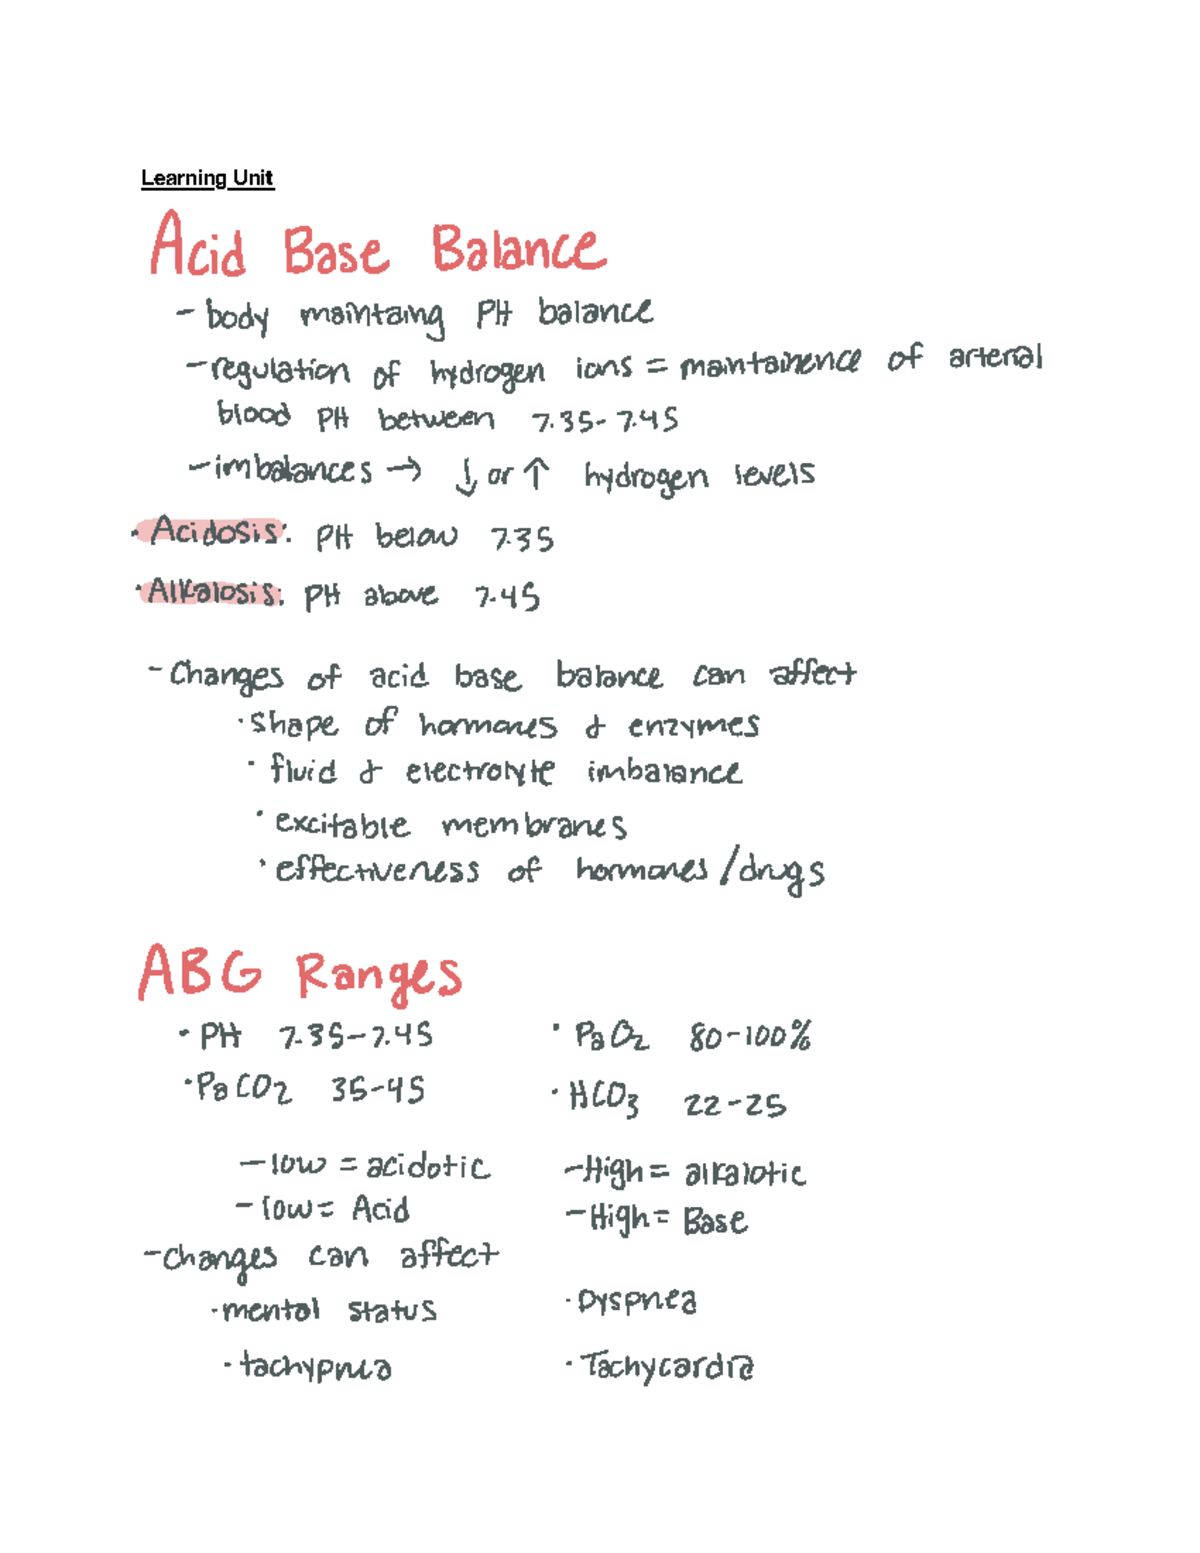 Learning Unit
Acid Base Balance
- body maintaing PH balance
- regulation of hydrogen ions = maintainence of arterial
blood PH between 7.35-7.45
- imbalances → ↓ or ↑ hydrogen levels
• Acidosis: PH below 7.35
• Alkalosis: PH above 7.45
- Changes of acid base balance can affect
• shape of hormones & enzymes
• fluid & electrolyte imbalance
• excitable membranes
• effectiveness of hormones/drugs
ABG Ranges
• PH 7.35-7.45 • PaO2 80-100%
• PaCO2 35-45 • HCO3 22-25
- low = acidotic - High = alkalotic
- low = Acid - High = Base
- changes can affect
• mental status • Dyspnea
• tachypnea • Tachycardia